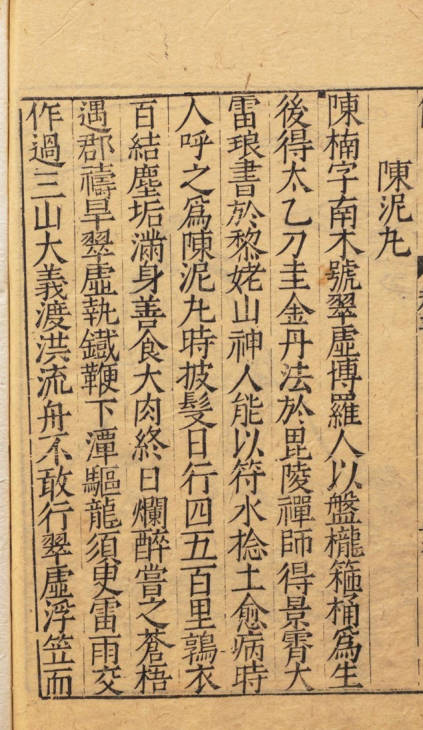 陳泥丸
陳楠字南木號翠虛博羅人以盤櫳箍桶爲生
後得太乙刀圭金丹法於毘陵禪師得景霄大
雷琅書於黎姥山神人能以符水捻土愈病時
人呼之爲陳泥丸時披髮日行四五百里鶉衣
百結塵垢滿身善食犬肉終日爛醉嘗之蒼梧
遇郡禱旱翠虛執鐵鞭下潭驅龍須臾雷雨交
作過三山大義渡洪流舟不敢行翠虛浮笠而